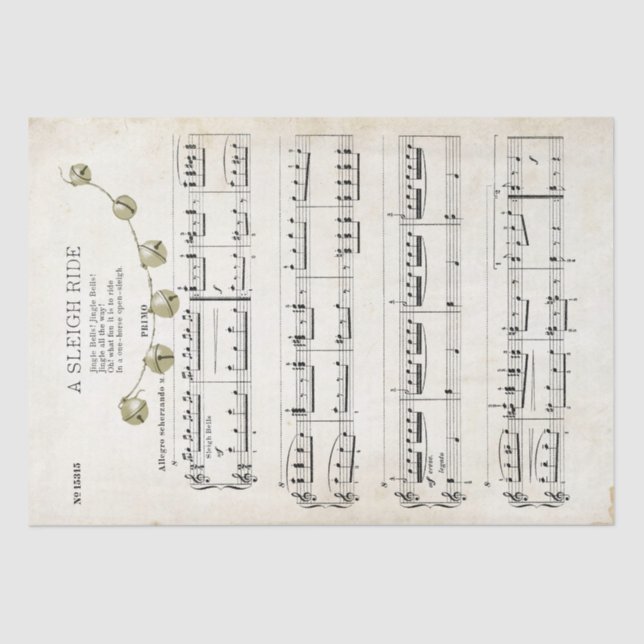 A SLEIGH RIDE
Nº 15315
Jingle Bells! Jingle Bells!
Jingle all the way!
Oh! what fun it is to ride
In a one-horse open-sleigh.
PRIMO
Allegro scherzando M.
8
Sleigh Bells
mf
8
8
mf cresc.
legato
8
1
2
f